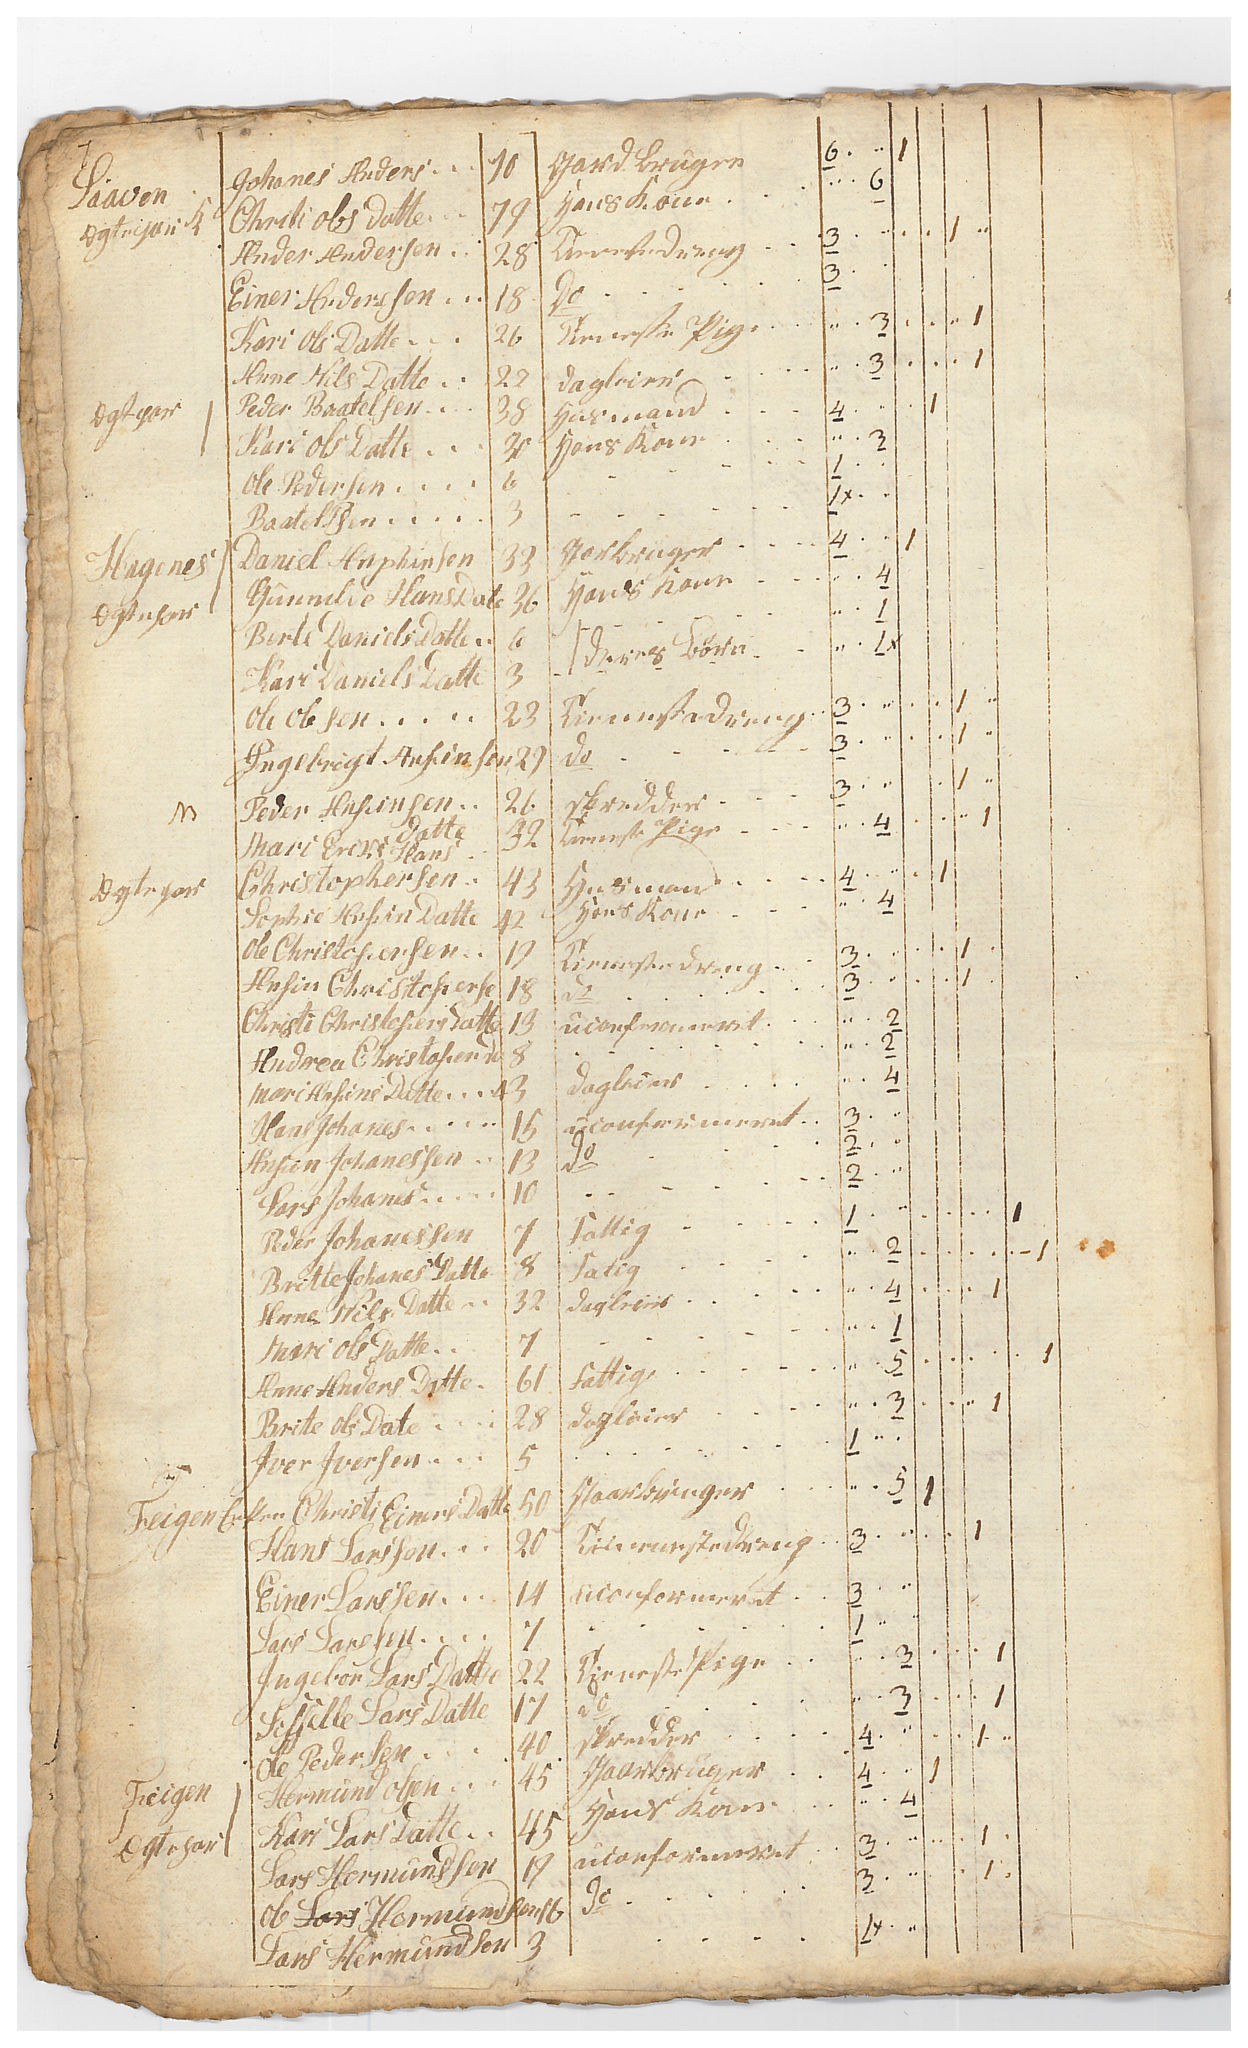 7
Saaven Johanes Anders . . . 70 Gard bruger 6 . " 1
Egtepar Christi Ols Datte . . . 79 Hans Kone . . . " 6
Ander Andersen . . 28 Tienestedreng . . 3 . . . . 1 "
Einer Anderssen . . . 18 Do . . . . . 3 .
Kari Ols Datte . . . 26 Tieneste Pige . . . " . 3 . . . " 1
Anne Nils Datte . . 22 dagleier . . . " . 3 . . . 1
Egtepar Peder Baatelsen . . . 38 Husmand . . . 4 . " . . 1
Kari Ols Datte . . . Hans Kone . . . " . 3
Ole Pedersen . . . . 6 . . . 1 . .
Baatel Psen . . . . . 3 . . . . 1x . "
Hagenes Daniel Anphinsen 33 Garbruger . . . 4 . . . 1
Egtepar Gunnilde Hans Date 36 Hans Kone . . . " 4
Berte Daniels Datte . . 6 deres Börn . . " . 1
Kari Daniels Datte 3 " . 1x
Ole Olsen . . . . . 23 Tienestedreng . . 3 . " . . 1 "
Ingebrigt Anfinsen 29 do . . . . 3 . " . . 1 "
Peder Anfinsen . . 26 skredder . . . 3 . " . . 1 "
Datte
Mari Eriks 32 Tieneste Pige . . . " . 4 . . . " 1
Hans
Egtepar Christophersen . . 43 Husmand . . . 4 . " . . 1
Sophie Anfin Datte 42 Hans Kone . . . " . 4
Ole Christofersen . . 19 Tienestedreng . . . 3 . " . . 1 .
Anfin Christoferse 18 do . . . . 3 . " . . 1 .
Christi Christofers Datte 13 uconfermeret . . . " . 2
Andrea Christofer d 8 . . . . " . 2
Mari Anfins Datte . . . 43 dagleier . . . " . 4
Hans Johanes . . . . . 15 uconfermeret . . 3 . "
Anfin Johanessen . . 13 do . . . 2 . "
Lars Johanes . . . . 10 . . . . 2 . "
Peder Johanessen 7 Fattig . . . 1 . " . . . . . 1
Britte Johanes Datte 8 Fatig . . . " . 2 . . . . . - 1
Anne Nils Datte . . 32 dagleier . . . " . 4 . . . . 1
Mari Ols Datte . . 7 . . . . " . 1
Anne Anders Datte . 61 Fattig . . . " . 5 . . . . . 1
Brite Ols Date . . . 28 dagleier . . . " . 3 . . " 1
Iver Iversen . . . 5 . . . . 1 " .
Feigen Enken Christi Einers Datte 50 Gaarbruger . . . " . 5 1
Hans Larssen . . . 20 Tienestedreng . . 3 . " . . 1
Einer Larssen . . . 14 uconformeret . . 3 . "
Lars Larssen . . . . 7 . . . . 1 " "
Ingebor Lars Datte 22 Tieneste Pige . . . " . 3 . . . . 1
Sissille Lars Datte 17 do . . . " . 3 . . . 1
Ole Pedersen . . . 40 skredder . . . 4 . " . . 1 . "
Feigen Hermund Olsen . . . 45 Gaarbruger . . 4 . " 1
Egtepar Kari Lars Datte . . 45 Hans Kone . . . " . 4
Lars Hermundssen 19 uconformeret . . 3 . " . . 1 .
Ole Lars Hermundsen 16 do . . . . 3 . " . . 1 .
Lars Hermundsen 3 . . . . 1x . "